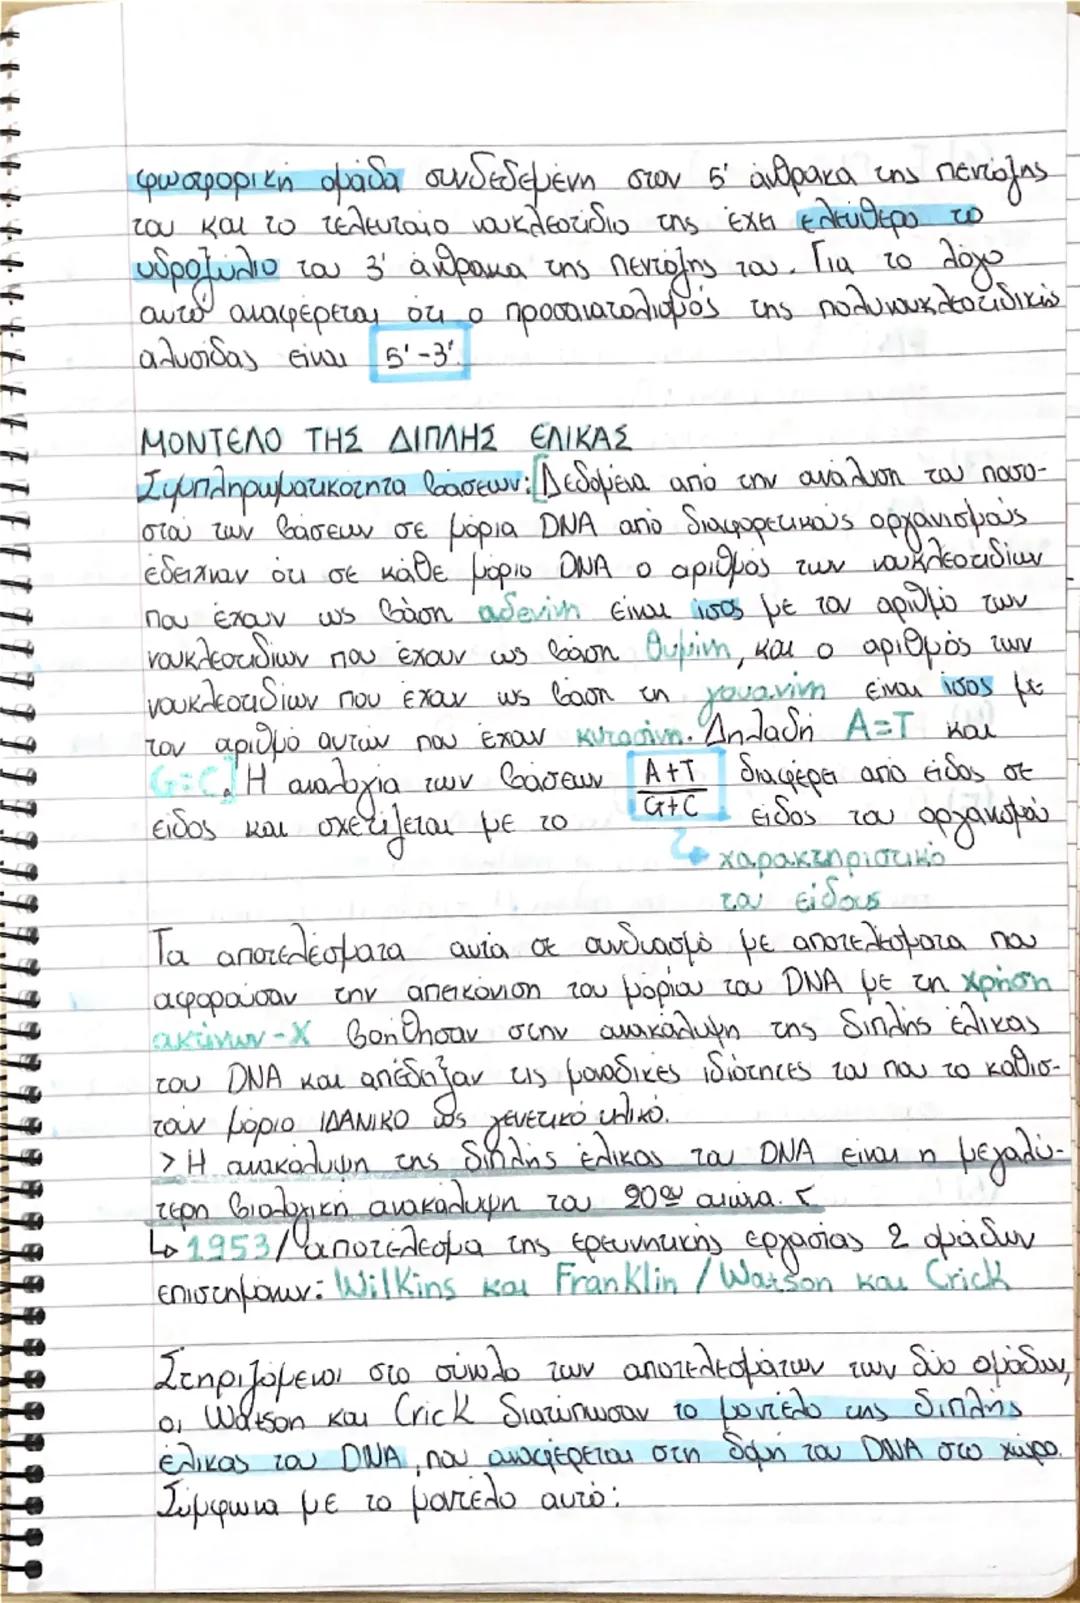 φωσφορική ομάδα συνδεδεμένη στον 5' άνθρακα της πεντόζης
του και το τελευταίο νουκλεοτίδιο της έχει ελεύθερο το
υδροξύλιο του 3' άνθρακα της πεντόζης του. Για το λόγο
αυτό αναφέρεται ότι ο προσανατολισμός της πολυνουκλεοτιδικής
αλυσίδας είναι 5'-3'.
ΜΟΝΤΕΛΟ ΤΗΣ ΔΙΠΛΗΣ ΕΛΙΚΑΣ
Συμπληρωματικότητα βάσεων: [Δεδομένα από την ανάλυση του ποσο-
στού των βάσεων σε μόρια DNA από διαφορετικούς οργανισμούς
έδειχναν ότι σε κάθε μόριο DNA ο αριθμός των νουκλεοτιδίων
που έχουν ως βάση αδενίνη είναι ίσος με τον αριθμό των
νουκλεοτιδίων που έχουν ως βάση θυμίνη, και ο αριθμός των
νουκλεοτιδίων που έχουν ως βάση τη γουανίνη είναι ίσος με
τον αριθμό αυτών που έχουν κυτοσίνη. Δηλαδή A=T και
G=C.] Η αναλογία των βάσεων A+T διαφέρει από είδος σε
G+C
είδος και σχετίζεται με το είδος του οργανισμού
↳ χαρακτηριστικό
του είδους
Τα αποτελέσματα αυτά σε συνδιασμό με αποτελέσματα που
αφορούσαν την απεικόνιση του μορίου του DNA με τη χρήση
ακτίνων-Χ βοήθησαν στην ανακάλυψη της διπλής έλικας
του DNA και απέδειξαν τις μοναδικές ιδιότητες του που το καθισ-
τούν μόριο ΙΔΑΝΙΚΟ ως γενετικό υλικό.
> Η ανακάλυψη της διπλής έλικας του DNA είναι η μεγαλύ-
τερη βιολογική ανακάλυψη του 20ου αιώνα. <
↳ 1953/ αποτέλεσμα της ερευνητικής εργασίας 2 ομάδων
επιστημόνων: Wilkins και Franklin / Watson και Crick
Στηριζόμενοι στο σύνολο των αποτελεσμάτων των δύο ομάδων,
οι Watson και Crick διατύπωσαν το μοντέλο της διπλής
έλικας του DNA, που αναφέρεται στη δομή του DNA στο χώρο.
Σύμφωνα με το μοντέλο αυτό: